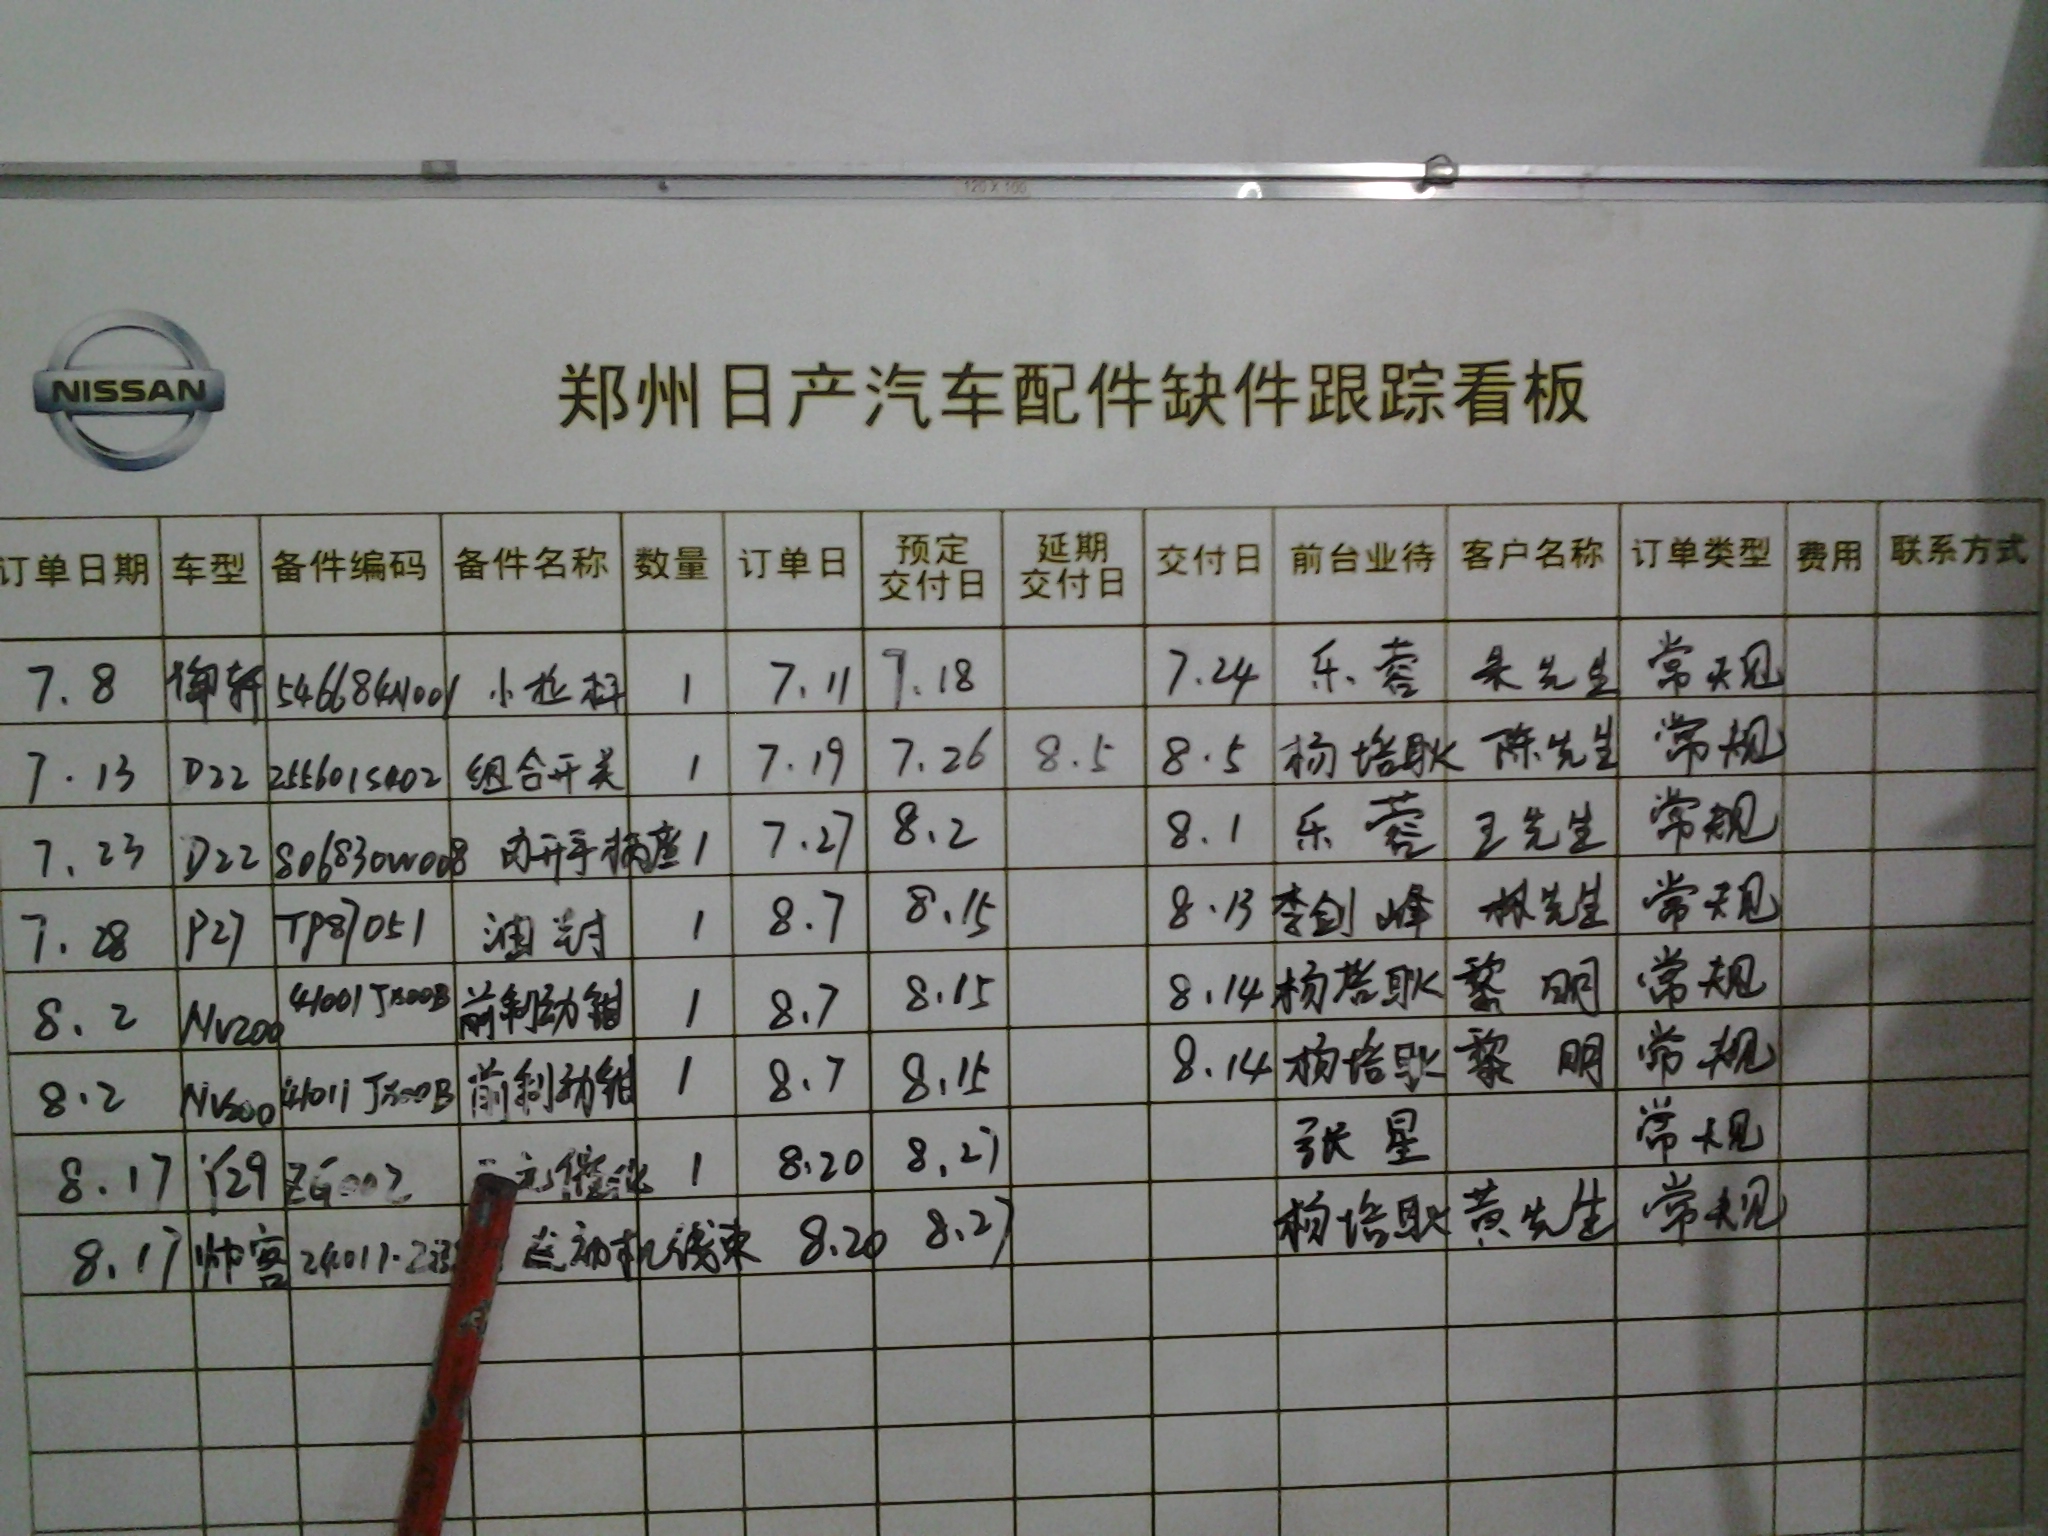 120 X 100
NISSAN
郑州日产汽车配件缺件跟踪看板
订单日期 车型 备件编码 备件名称 数量 订单日 预定交付日 延期交付日 交付日 前台业待 客户名称 订单类型 费用 联系方式
7.8 御轩 546684N001 小拉杆 1 7.11 7.18 7.24 乐蓉 朱先生 常规
7.13 D22 255601S402 组合开关 1 7.19 7.26 8.5 8.5 杨培耿 陈先生 常规
7.23 D22 806830W008 内开手柄座 1 7.27 8.2 8.1 乐蓉 王先生 常规
7.28 P27 TP87051 油封 1 8.7 8.15 8.13 李剑峰 林先生 常规
8.2 NV200 41001JX00B 前制动钳 1 8.7 8.15 8.14 杨培耿 黎明 常规
8.2 NV200 41011JX00B 前制动钳 1 8.7 8.15 8.14 杨培耿 黎明 常规
8.17 Y29 ZG002 元催化 1 8.20 8.27 张星 常规
8.17 帅客 24011-Z 发动机线束 8.20 8.27 杨培耿 黄先生 常规